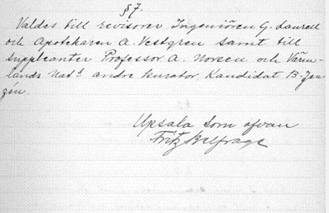 §7.
Valdes till revisorer Ingeniören G. Laurell
och Apotekaren A. Vestgren samt till
suppleanter Professor A. Noreen och Värm-
lands Nats andre Kurator Kandidat B. Jon-
gén.
Upsala som ofvan
Fritz Belfrage